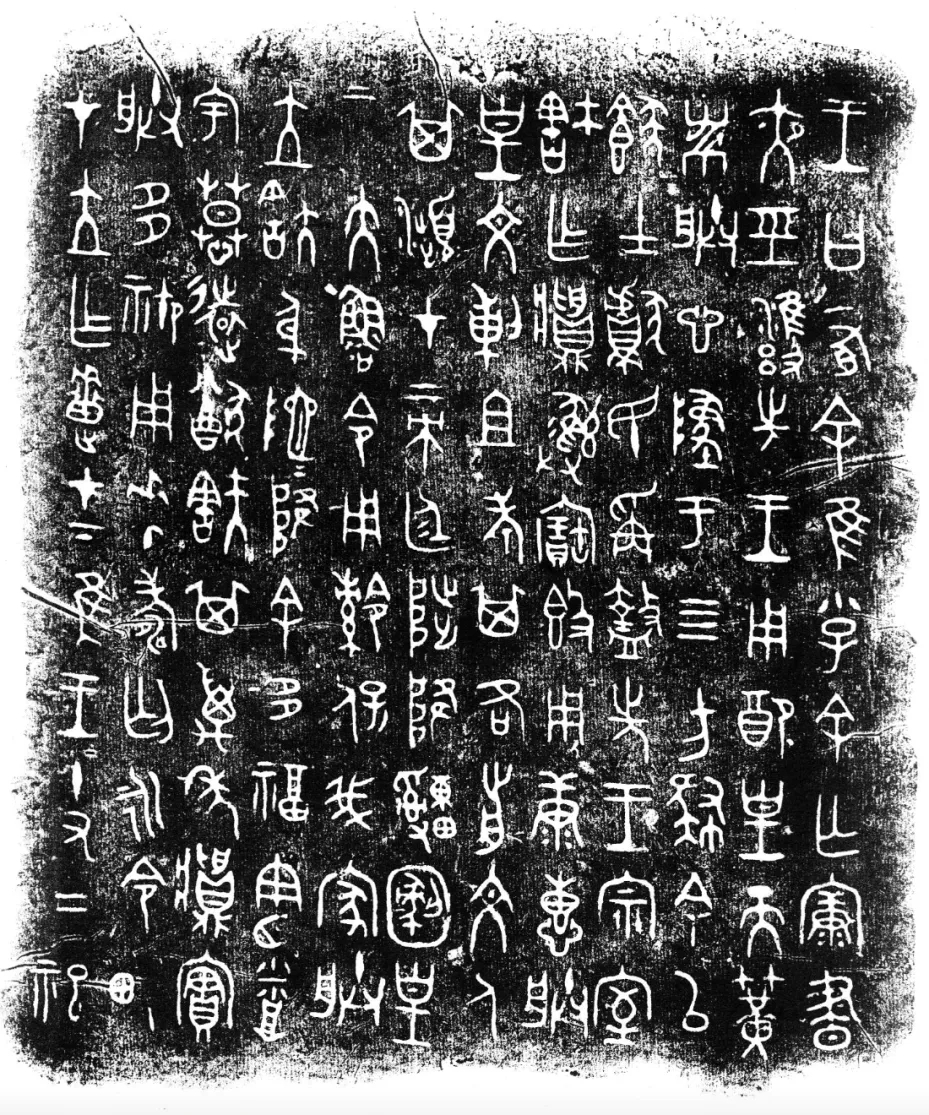 王曰有余隹小子余亡康晝
夜巠雍先王用配皇天簧
黹朕心墜于四方肆余以
士獻民爯盩先王宗室
㝬乍彝寶簋用康惠朕
皇文剌且考其各前文人
其瀕才帝廷陟降𤕌皇
帝大魯令用保我家朕
立㝬身阤降余多福憲烝
宇慕遠猷㝬其萬年實
朕多禦用𠦪壽匄永令畯
才立乍疐才下隹王十又二祀